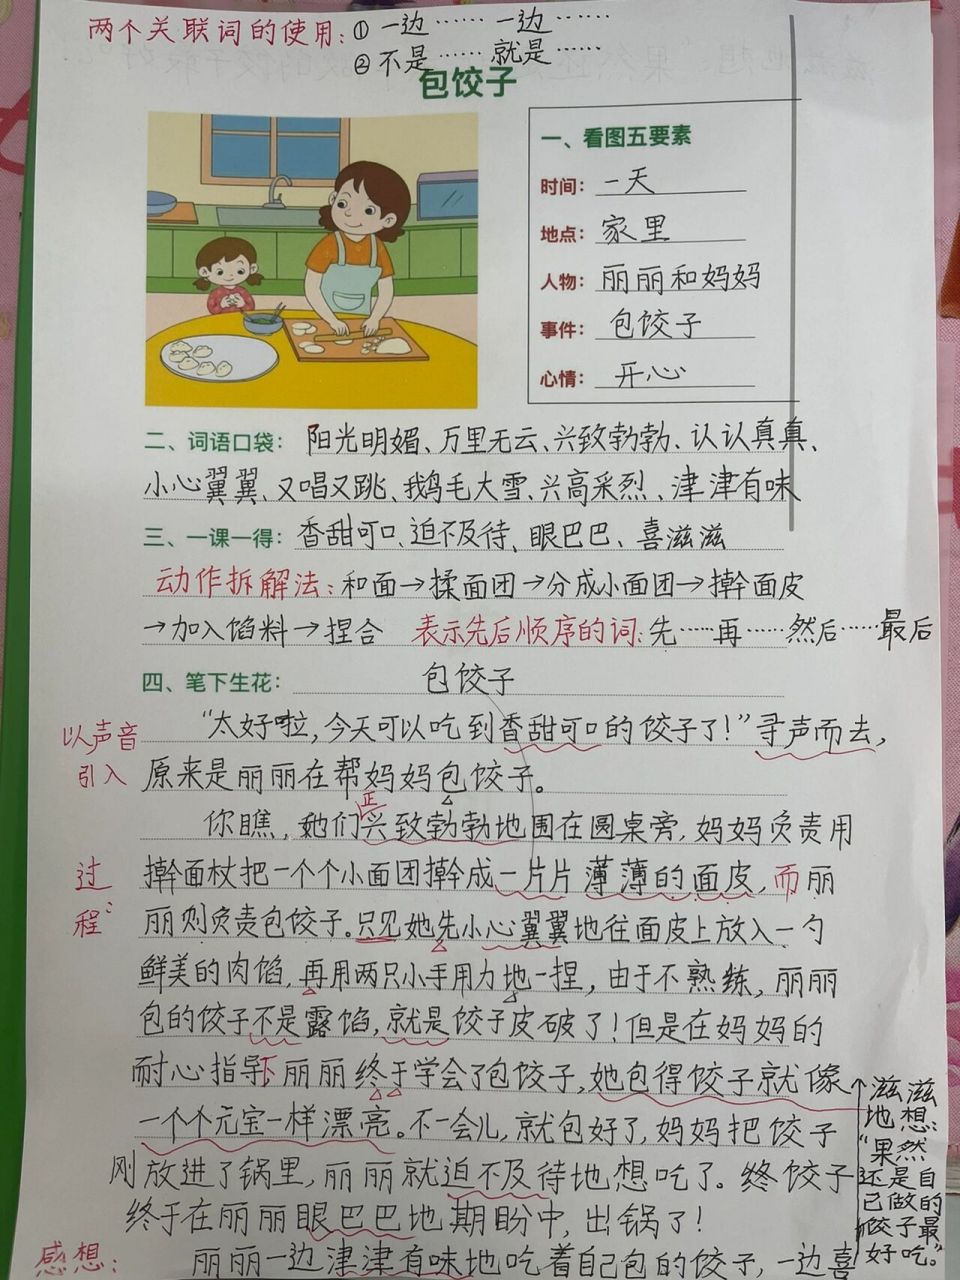 两个关联词的使用：①一边……一边……
②不是……就是……
包饺子
一、看图五要素
时间：一天
地点：家里
人物：丽丽和妈妈
事件：包饺子
心情：开心
二、词语口袋：阳光明媚、万里无云、兴致勃勃、认认真真、
小心翼翼、又唱又跳、鹅毛大雪、兴高采烈、津津有味
三、一课一得：香甜可口、迫不及待、眼巴巴、喜滋滋
动作拆解法：和面→揉面团→分成小面团→擀面皮
→加入馅料→捏合 表示先后顺序的词：先……再……然后……最后
四、笔下生花：包饺子
“太好啦，今天可以吃到香甜可口的饺子了！”寻声而去，
以声音
引入
原来是丽丽在帮妈妈包饺子。
正
你瞧，她们兴致勃勃地围在圆桌旁，妈妈负责用
过
程：
擀面杖把一个个小面团擀成一片片薄薄的面皮，而丽
丽则负责包饺子。只见她先小心翼翼地往面皮上放入一勺
鲜美的肉馅，再用两只小手用力地一捏，由于不熟练，丽丽
包的饺子不是露馅，就是饺子皮破了！但是在妈妈的
耐心指导下丽丽终于学会了包饺子，她包得饺子就像
一个个元宝一样漂亮。不一会儿，就包好了，妈妈把饺子
刚放进了锅里，丽丽就迫不及待地想吃了。终饺子
终于在丽丽眼巴巴地期盼中，出锅了！
感想：
丽丽一边津津有味地吃着自己包的饺子，一边喜
滋滋
地想：
“果然
还是自
己做的
饺子最
好吃。”